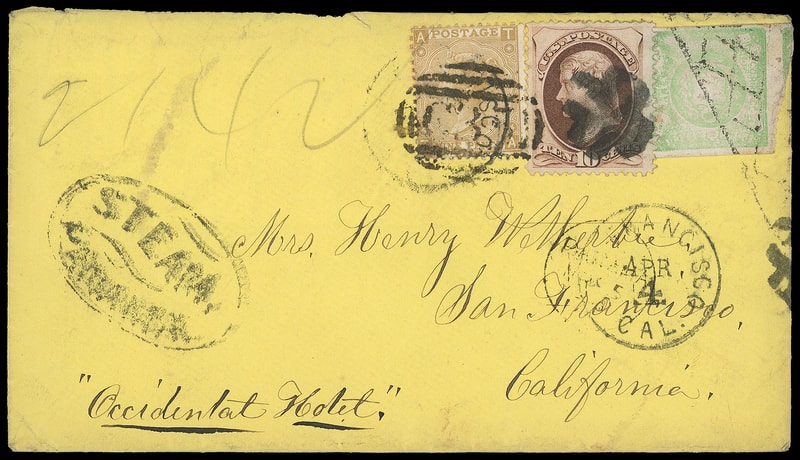 A POSTAGE T
U.S. POSTAGE
TEN 10
2142
STEAM.
Mrs. Henry Wetherbee
FRANCISCO
APR
4
CAL.
San Francisco,
California.
"Occidental Hotel".